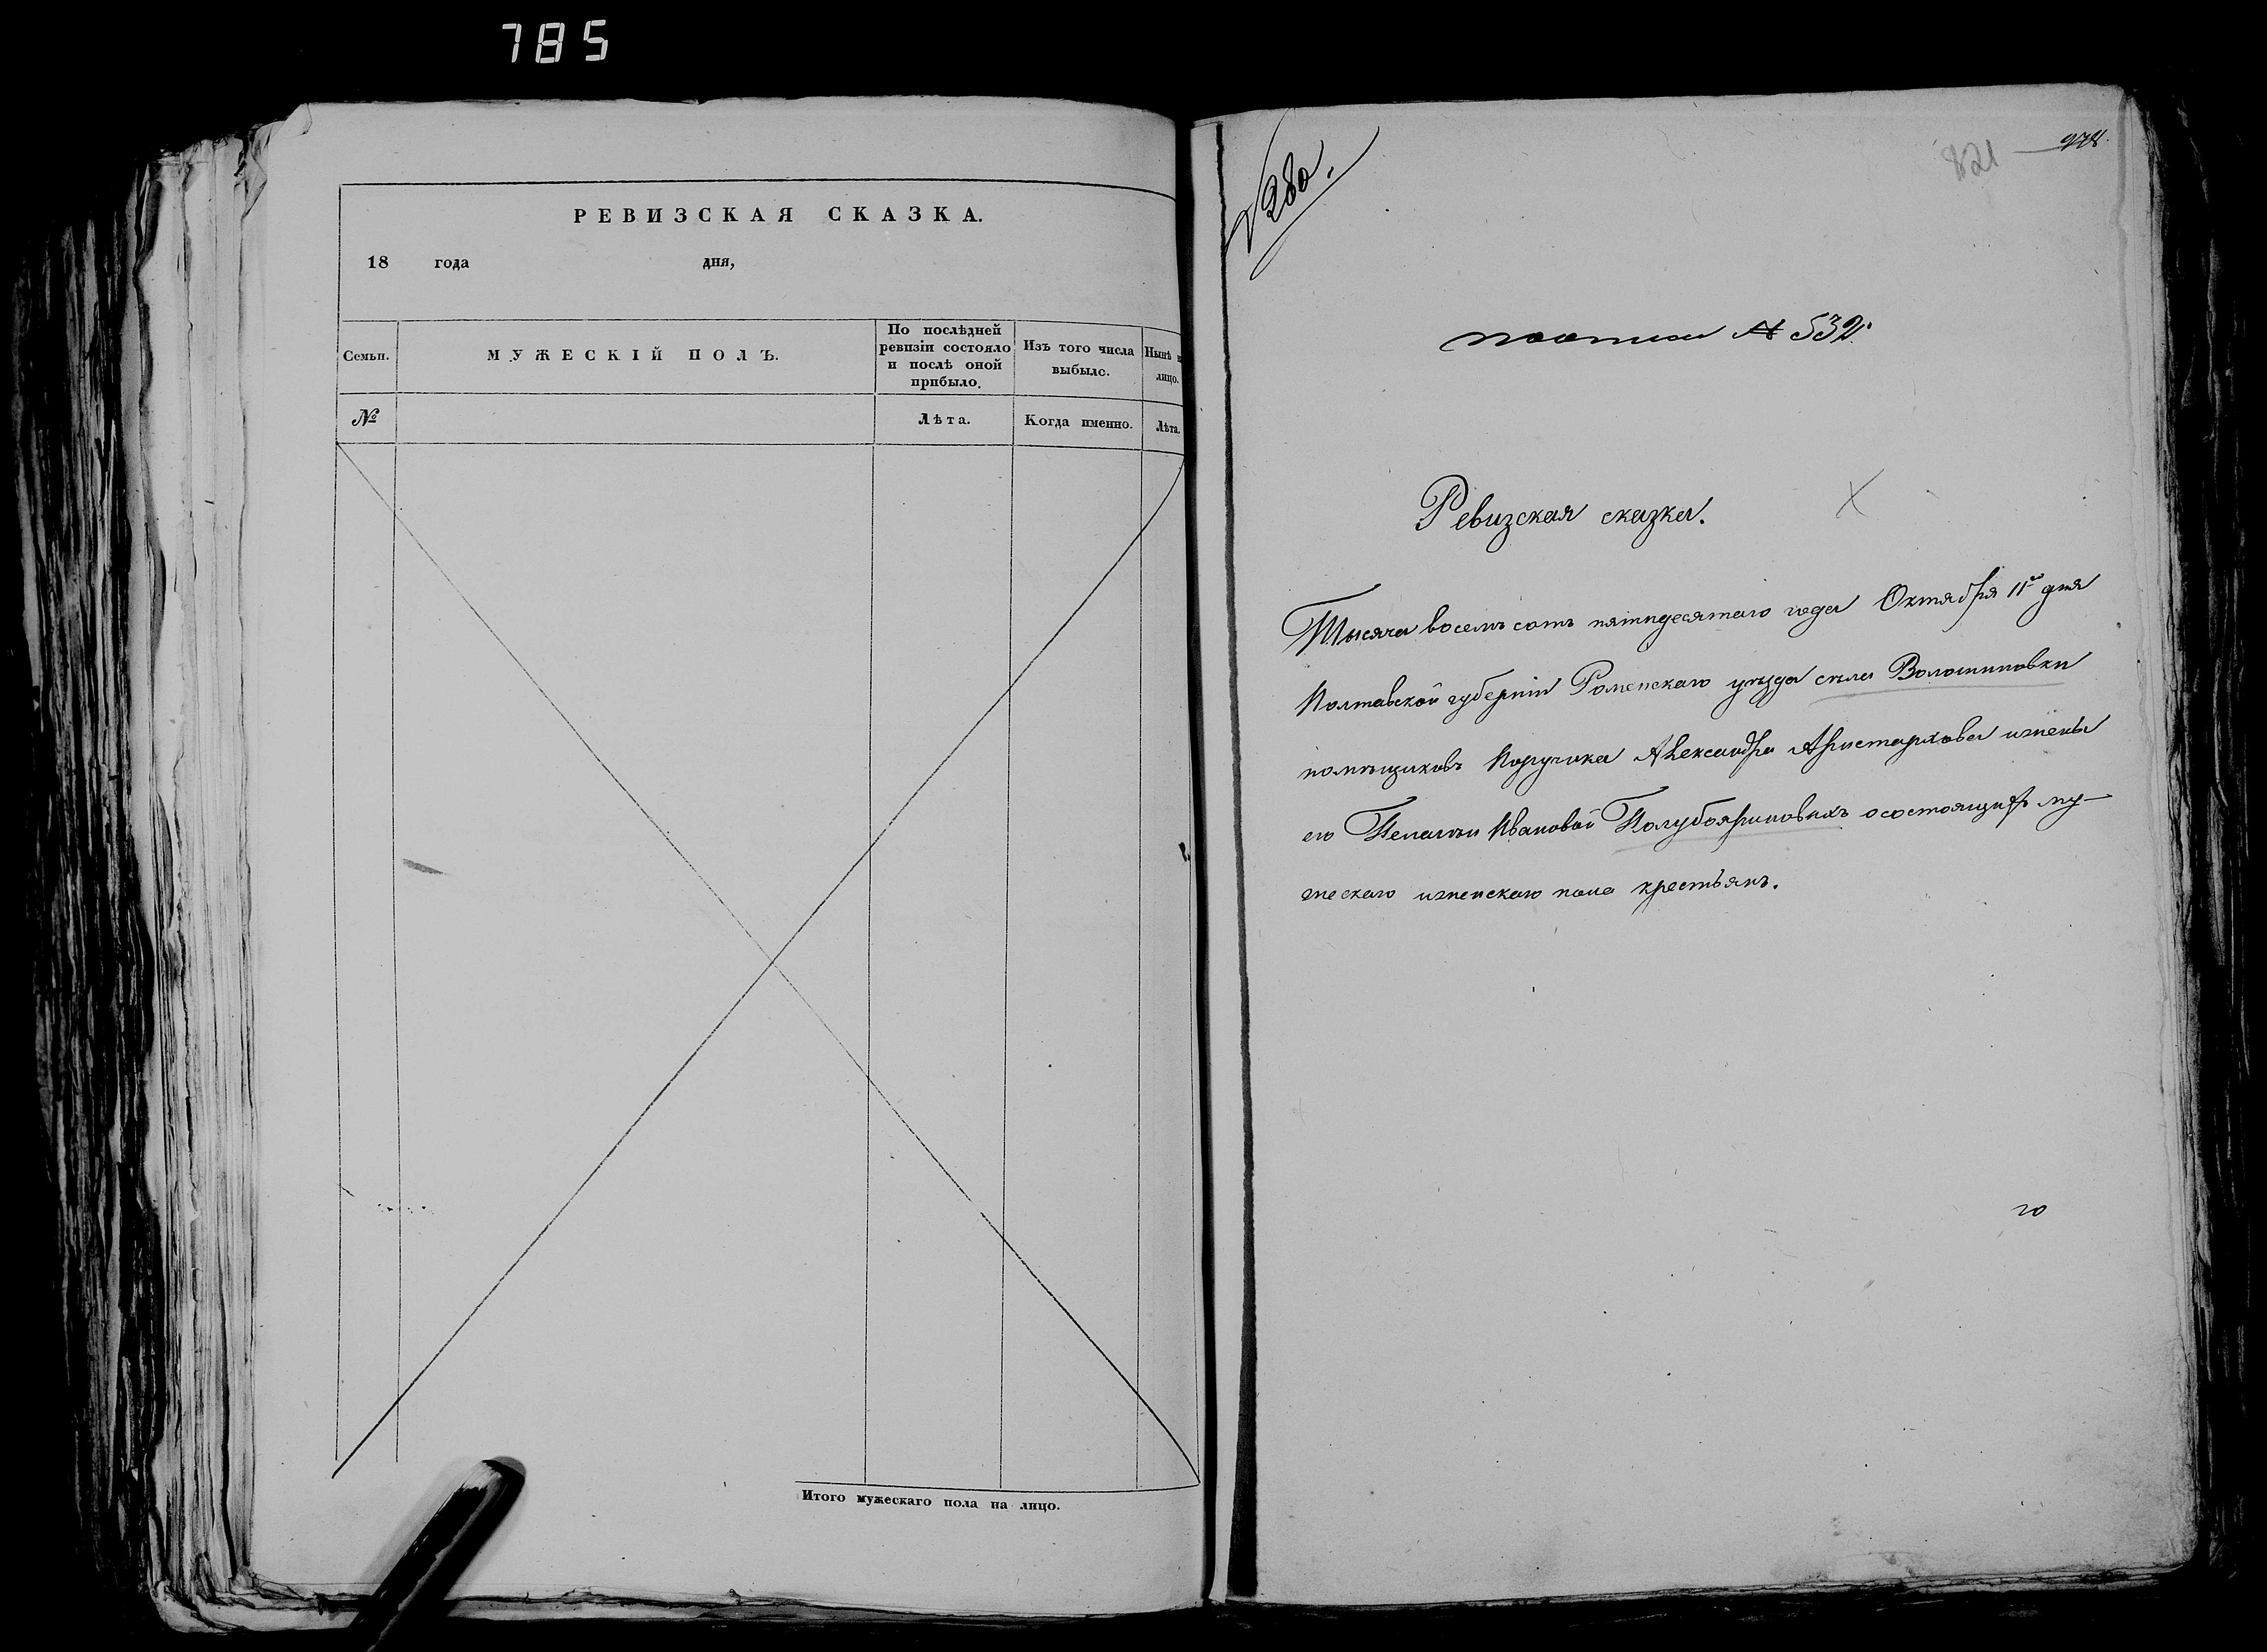 785
РЕВИЗСКАЯ СКАЗКА.
18 года дня,
Семьи.
МУЖЕСКІЙ ПОЛЪ.
По послѣдней
ревизіи состояло
и послѣ оной
прибыло.
Изъ того числа
выбыло.
Нынѣ
лицо.
№
Лѣта.
Когда именно.
Лѣта.
Итого мужескаго пола на лицо.
280.
821
№ 532.
Ревизская сказка.
Тысяча восемъ сотъ пятидесятаго года Октября 11го дня
Полтавской губерніи Роменскаго уѣзда села Волошиновки
помѣщиковъ Поручика Александра Аристархова и жены
его Пелагѣи Ивановой Полубояриновыхъ о состоящихъ му-
жескаго и женскаго пола крестьянъ.